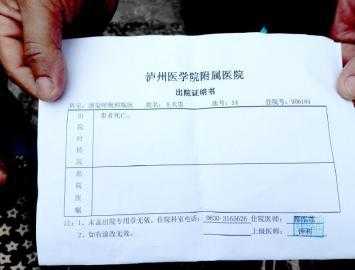 泸州医学院附属医院
出院证明书
科室：感染呼吸科病区 姓名： 床号：34 住院号：
出院时情况
患者死亡。
出院医嘱
注：1、未盖出院专用章无效，住院科室电话：0830-3165626 住院医师：
2、如有涂改无效。 上级医师：